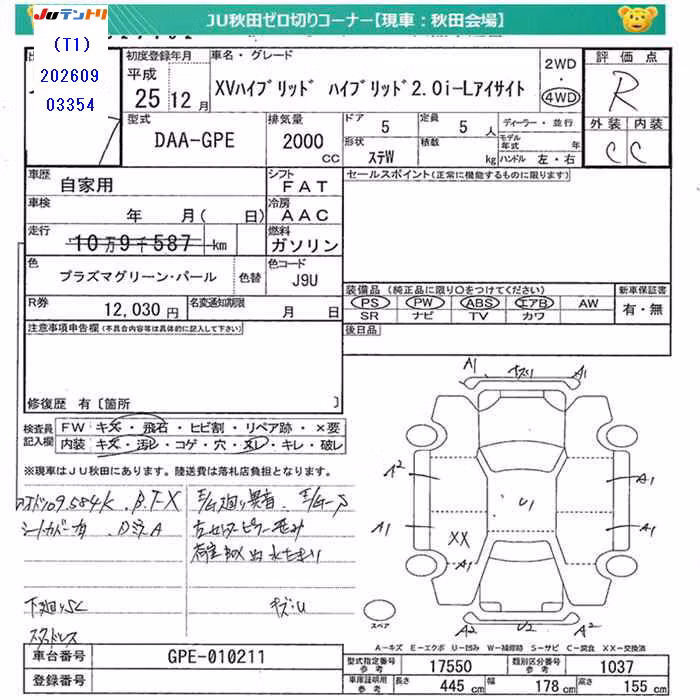 Juテントリ
JU秋田ゼロ切りコーナー【現車：秋田会場】
(T1)
202609
03354
初度登録年月
平成
25 12月
車名・グレード
XVハイブリッド ハイブリッド2.0i-Lアイサイト
2WD
・
4WD
評価点
R
外装 内装
C C
型式
DAA-GPE
排気量
2000
CC
ドア 5
定員 5 人
形状 ステW
積数 kg
ディーラー・並行
モデル年式 年
ハンドル 左・右
車歴
自家用
シフト
FAT
車検
年 月( 日)
冷房
AAC
走行
10万9千587 km
燃料
ガソリン
色
プラズマグリーン・パール
色替
色コード
J9U
R券
12,030円
名変通知期限
月 日
セールスポイント(正常に機能するものに限ります)
装備品(純正品に限り○をつけてください)
PS PW ABS エアB AW
SR ナビ TV カワ
新車保証書
有・無
後日品
注意事項申告欄(不具合内容等は具体的に記入して下さい)
修復歴 有〔箇所 〕
検査員記入欄
FW キズ・飛石・ヒビ割・リペア跡・×要
内装 キズ・汚レ・コゲ・穴・ヌレ・キレ・破レ
※現車はJU秋田にあります。陸送費は落札店負担となります。
109584K B.T-X
シートカバー有
下廻りSC
スタッドレス
E/G廻り異音
キズ・U
A1 A1
A2 A1
A1 A1
U1
XX
A1
A2 U2 A2
スペア
A-キズ E-エクボ U-凹み W-補修跡 S-サビ C-腐食 XX-交換済
車台番号
GPE-010211
登録番号
型式指定番号 参考
17550
類別区分番号 参考
1037
車庫証明用 参考
長さ 445 cm
幅 178 cm
高さ 155 cm